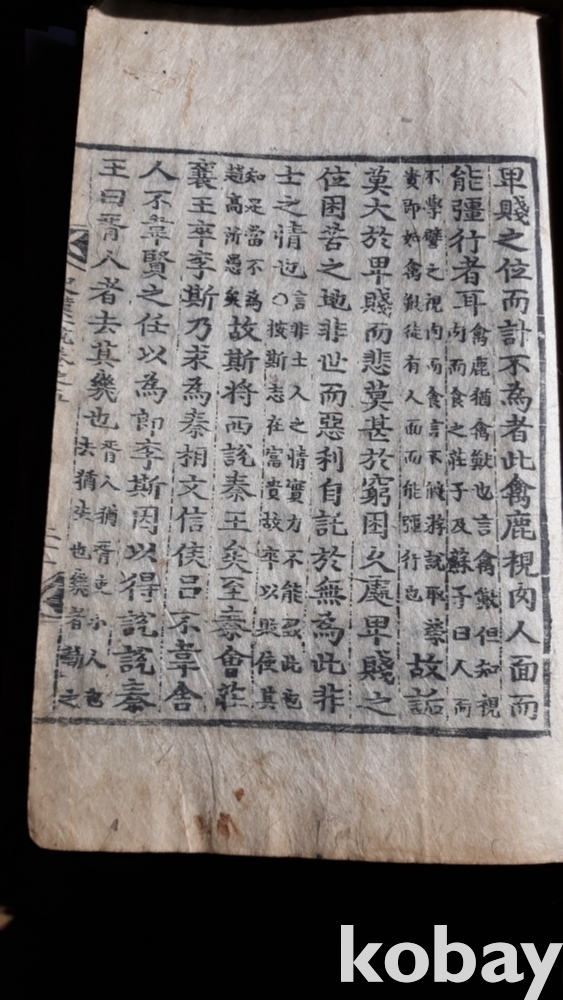 卑賤之位而計不為者此禽鹿視肉人面而
能彊行者耳禽鹿猶禽獸也言禽獸但知視肉而食之莊子及蘇子曰人而
不學譬之視肉而食言不能游說取榮貴即如禽獸徒有人面而能彊行也故詬
莫大於卑賤而悲莫甚於窮困久處卑賤之
位困苦之地非世而惡利自託於無為此非
士之情也○言非士人之情實力不能致此也彼斯志在富貴故卒以與使其
知是當不為趙高所愚矣故斯將西說秦王矣至秦會莊
襄王卒李斯乃求為秦相文信侯呂不韋舍
人不韋賢之任以為郎李斯因以得說說秦
王曰胥人者去其幾也胥人猶胥吏小人也去猶失也幾者動之
卷之五
kobay